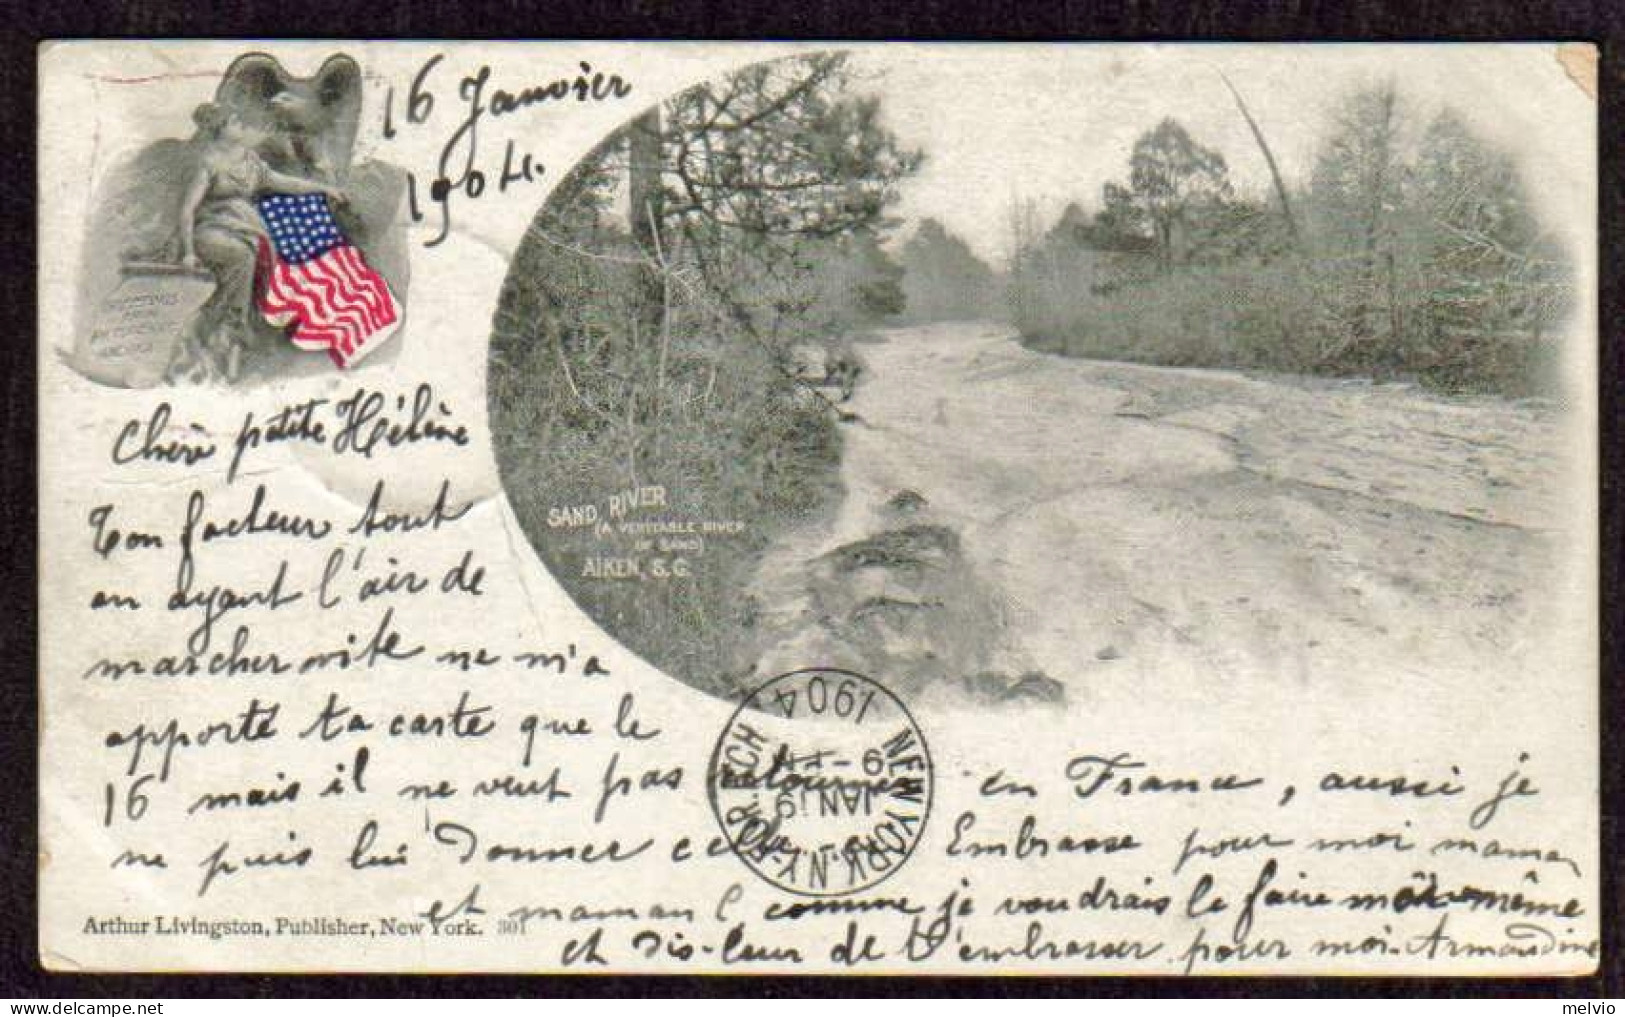 16 Janvier
1904.
GREETINGS
FROM
PICTURESQUE
AMERICA
SAND RIVER
(A VERITABLE RIVER
OF SAND)
AIKEN, S.C.
Chère petite Hélène
Ton facteur tout
en ayant l'air de
marcher vite ne m'a
apporté ta carte que le
16 mais il ne veut pas retourner en France, aussi je
ne puis lui donner celle-ci. Embrasse pour moi maman
et maman L comme je voudrais le faire moi-même
et dis-leur de t'embrasser pour moi. Armandine
NEW YORK, N.Y.
1904
JAN 19
9 - PM
Arthur Livingston, Publisher, New York. 301
melvio